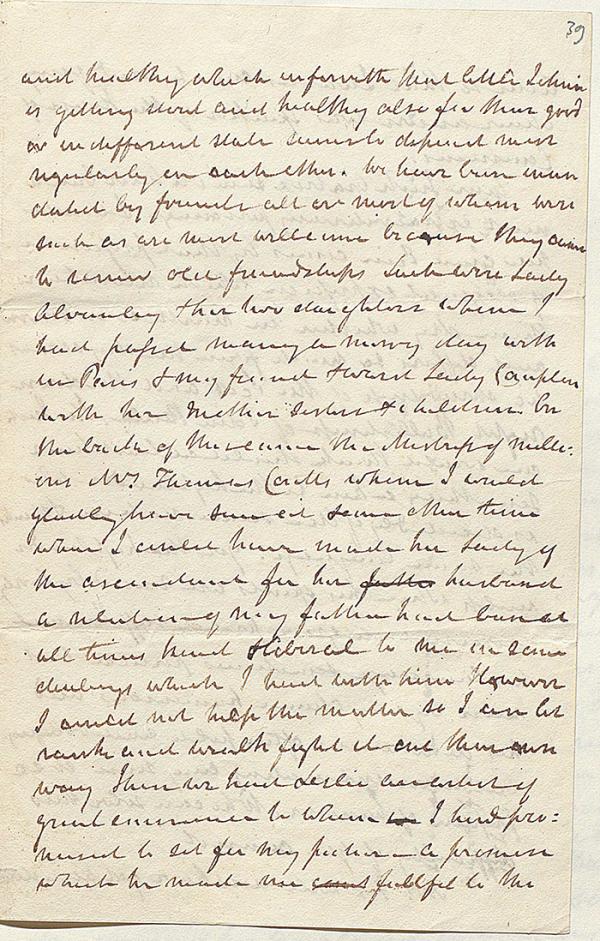 39
and healthy which inferreth that little Johnie
is getting stout and healthy also for their good
or indifferent state seems to depend most
regularly on each other. We have been inun
dated by friends all or most of whom were
such as are most wellcome because they came
to renew old friendships Such were Lady
Alvanley & her two daughters whom I
had passd many a merry day with
in Paris & my friend & ward Lady Compton
with her Mother Sisters & children. On
the back of these came the Mistress of milli:
ons Mrs. Thomas Coutts whom I would
gladly have seen at some other time
when I could have made her Lady of
the ascendant for her husband
a relation of my father had been at
all times kind & liberal to me in some
dealings which I had with him However
I could not help the matter so I een let
rank and wealth fight it out their own
way Then we had Leslie an artist of
great eminence to whom I had pro:
mised to sit for my picture a promise
which he made me fullfil to the